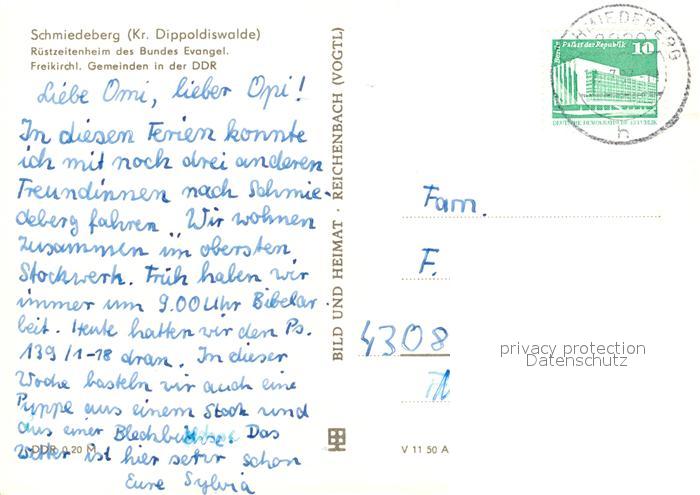 Schmiedeberg (Kr. Dippoldiswalde)
Rüstzeitenheim des Bundes Evangel.
Freikirchl. Gemeinden in der DDR
Liebe Omi, lieber Opi!
In diesen Ferien konnte
ich mit noch drei anderen
Freundinnen nach Schmie-
deberg fahren. Wir wohnen
zusammen im obersten
Stockwerk. Früh haben wir
immer um 9.00 Uhr Bibelar-
beit. Heute hatten wir den Ps.
139/1-18 dran. In dieser
Woche basteln wir auch eine
Puppe aus einem Stock und
aus einer Blechbüchse. Das
Wetter ist hier sehr schön
Eure Sylvia
DDR 0,20 M
BILD UND HEIMAT · REICHENBACH (VOGTL)
V 11 50 A
SCHMIEDEBERG
h
Berlin Palast der Republik
10
DEUTSCHE DEMOKRATISCHE REPUBLIK
Fam.
F.
4308
Th
privacy protection
Datenschutz